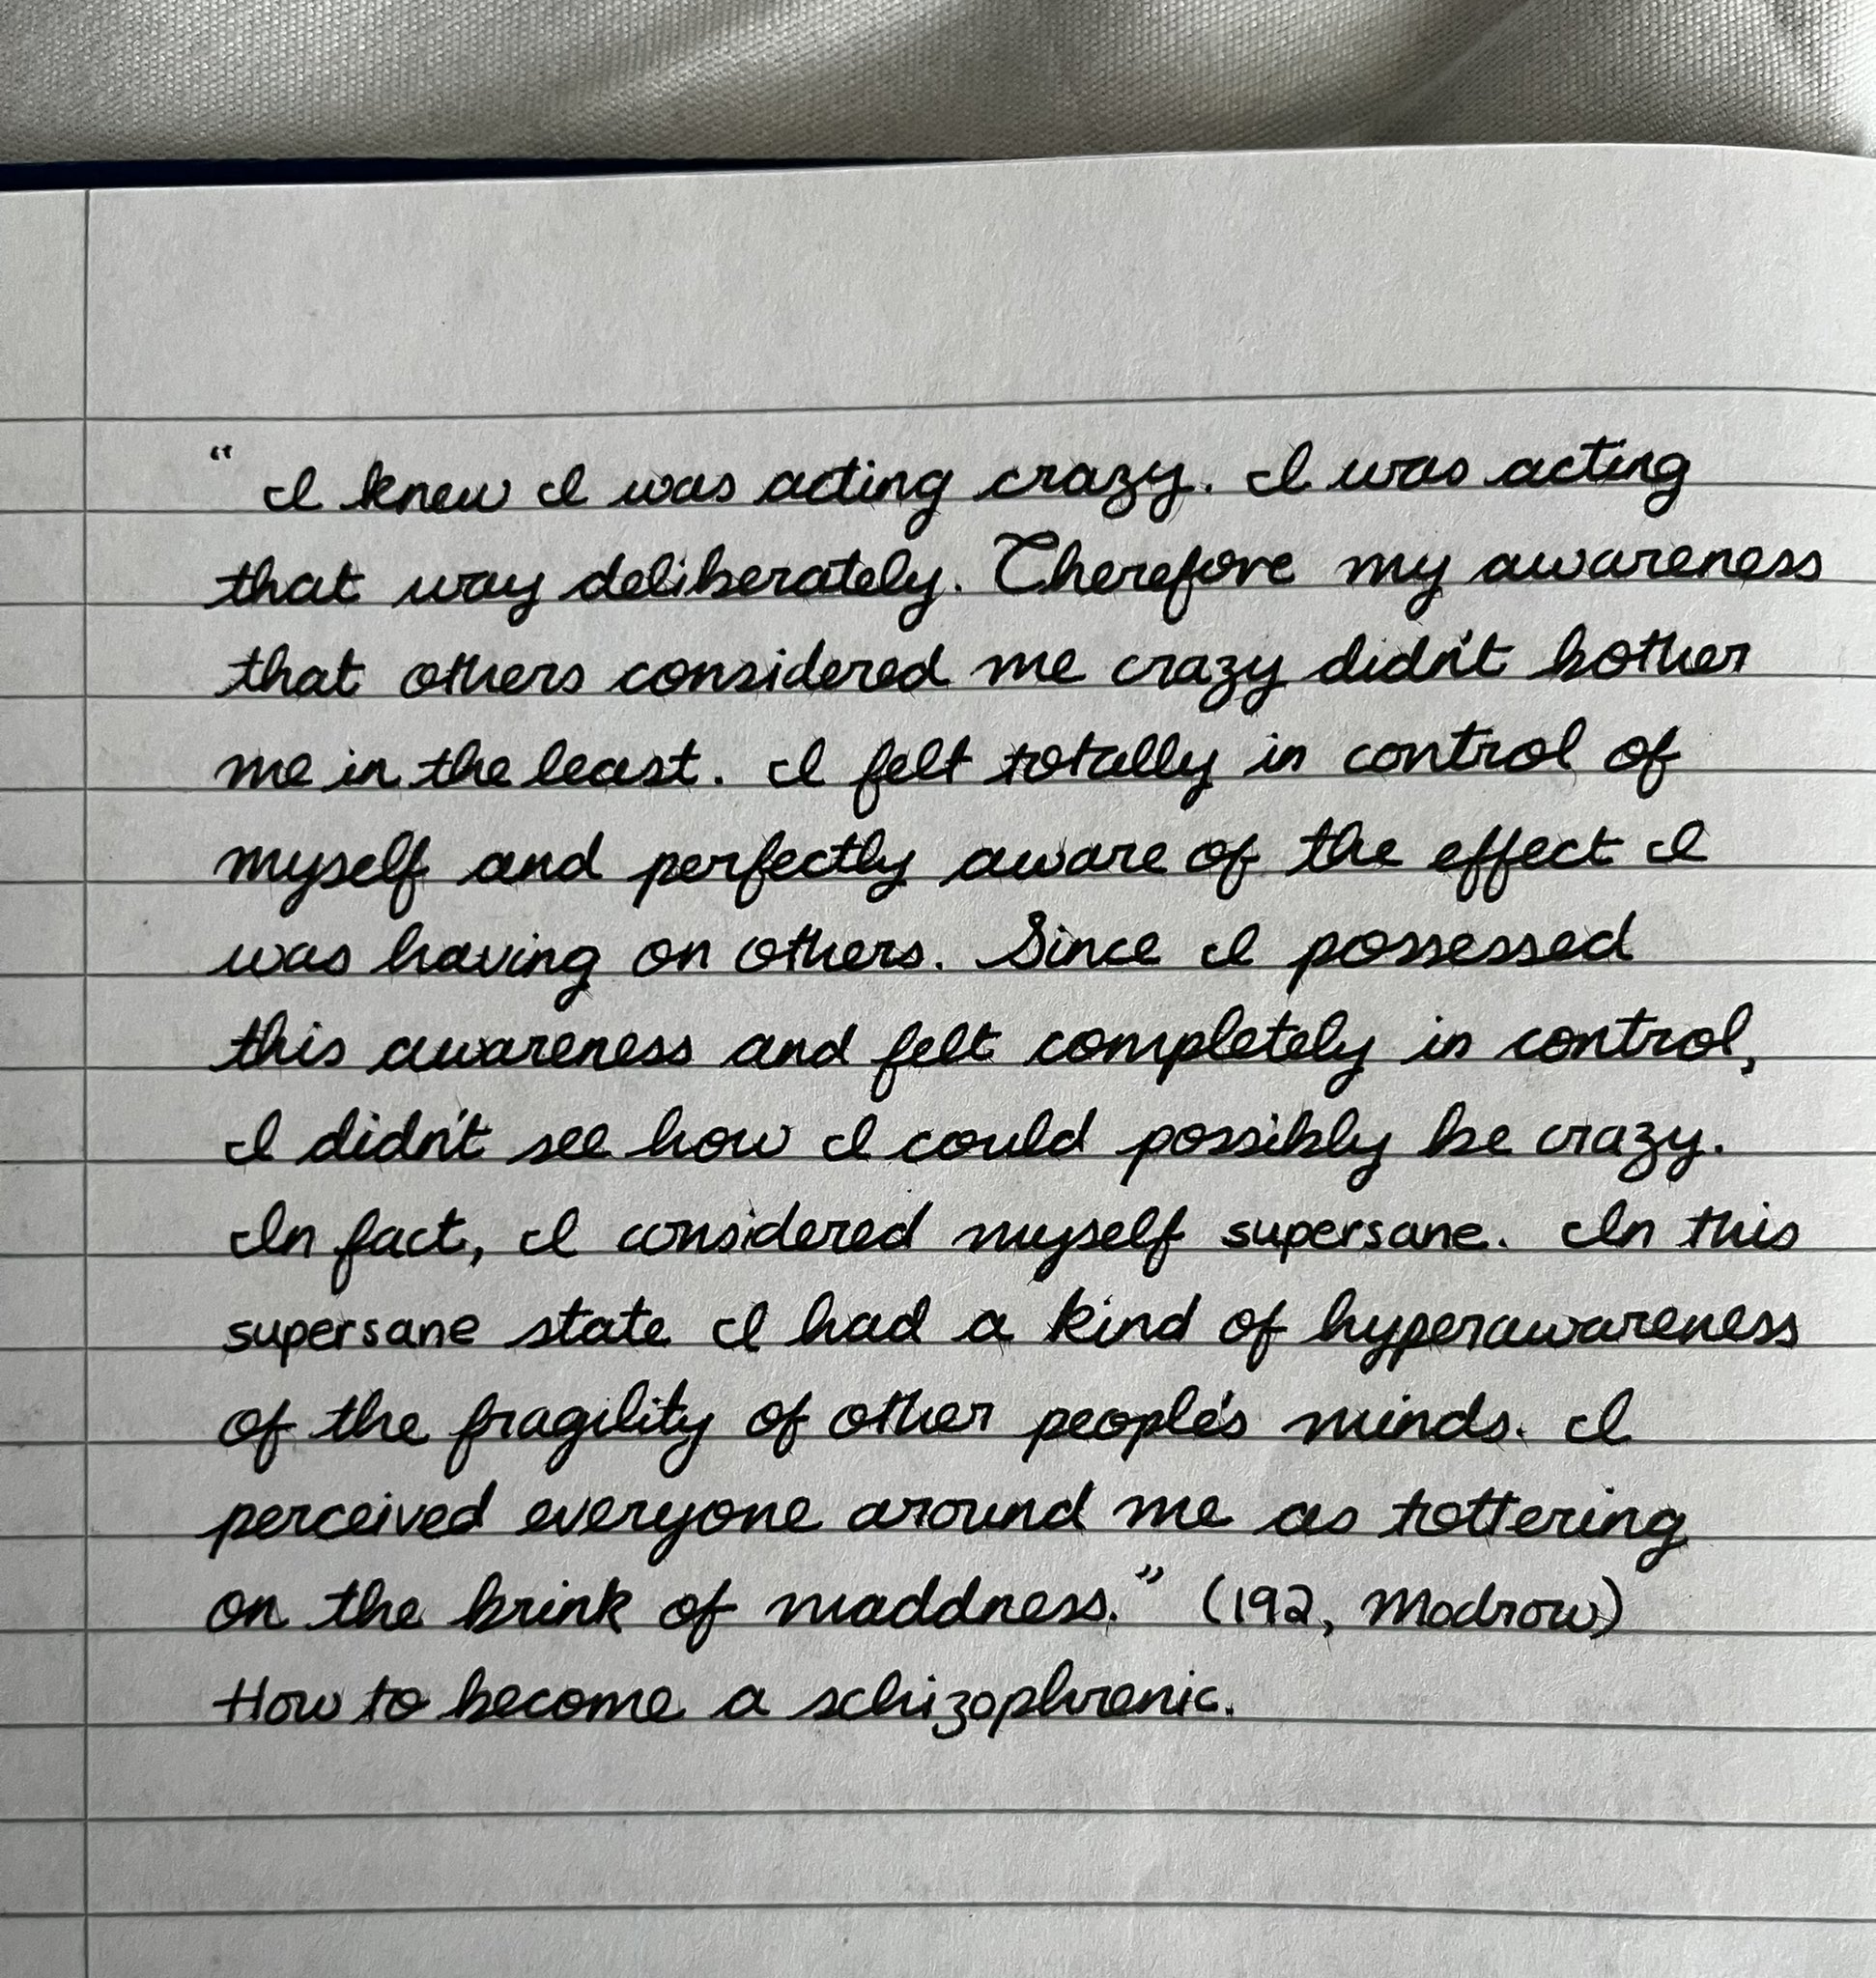 “ I knew I was acting crazy. I was acting
that way deliberately. Therefore my awareness
that others considered me crazy didn't bother
me in the least. I felt totally in control of
myself and perfectly aware of the effect I
was having on others. Since I possessed
this awareness and felt completely in control,
I didn't see how I could possibly be crazy.
In fact, I considered myself supersane. In this
supersane state I had a kind of hyperawareness
of the fragility of other people's minds. I
perceived everyone around me as tottering
on the brink of maddness.” (192, Modrow)
How to become a schizophrenic.